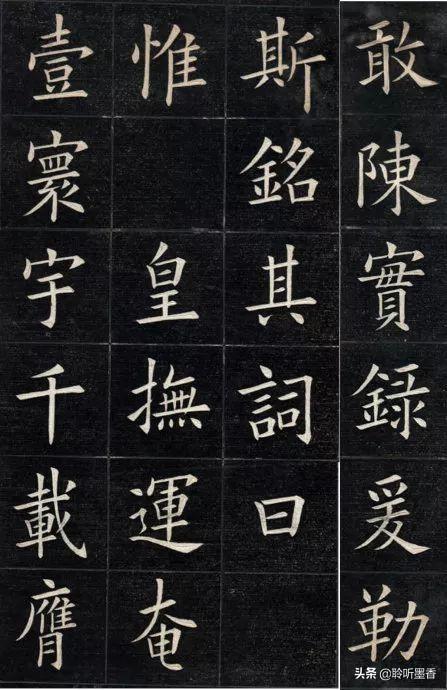 敢陳實錄爰勒
斯銘其詞曰
惟皇撫運奄
壹寰宇千載膺
头条 @聆听墨香